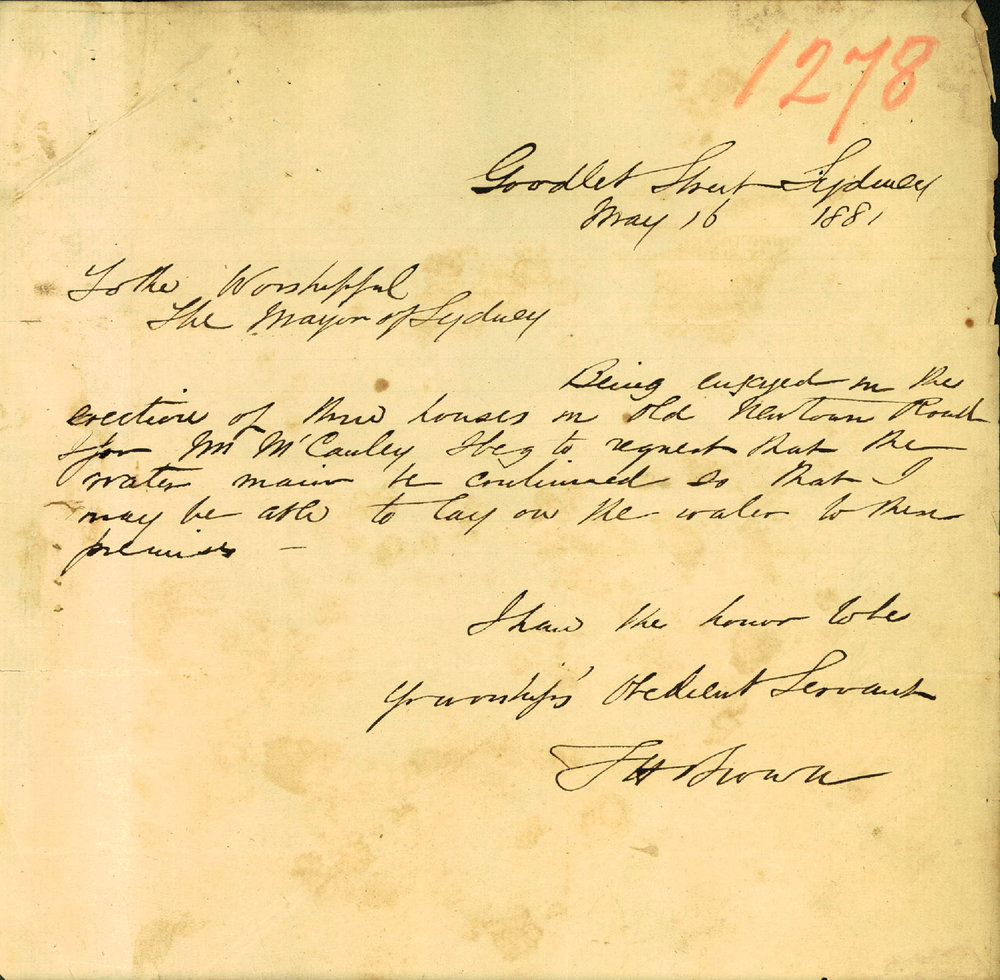 1278
Goodlet Street Sydney
May 16 1881
To the Worshipful
The Mayor of Sydney
Being engaged in the
erection of three houses in Old Newtown Road
for Mr McCauley I beg to request that the
water main be continued so that I
may be able to lay on the water to these
premises –
I have the honor to be
Yr worship's Obedient Servant
Brown